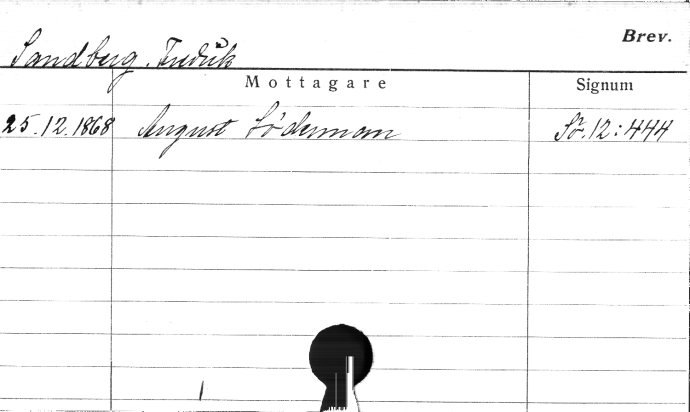 Brev.
Sandberg, Fredrik
Mottagare Signum
25.12.1868 August Söderman Sö. 12:444